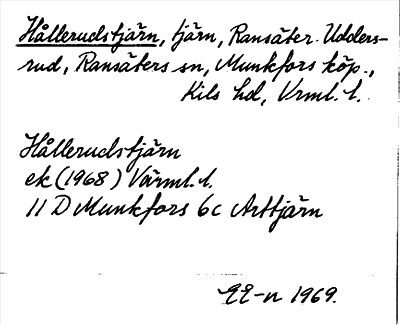 Hållerudstjärn, tjärn, Ransäter-Udders-
rud, Ransäters sn, Munkfors köp.,
Kils hd, Vrml. l.
Hållerudstjärn
ek (1968) Värml. l.
11 D Munkfors 6c Arttjärn
1969.